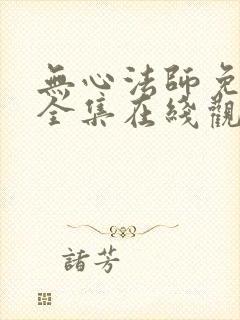 無心法師免
全集在綫觀
諸芳